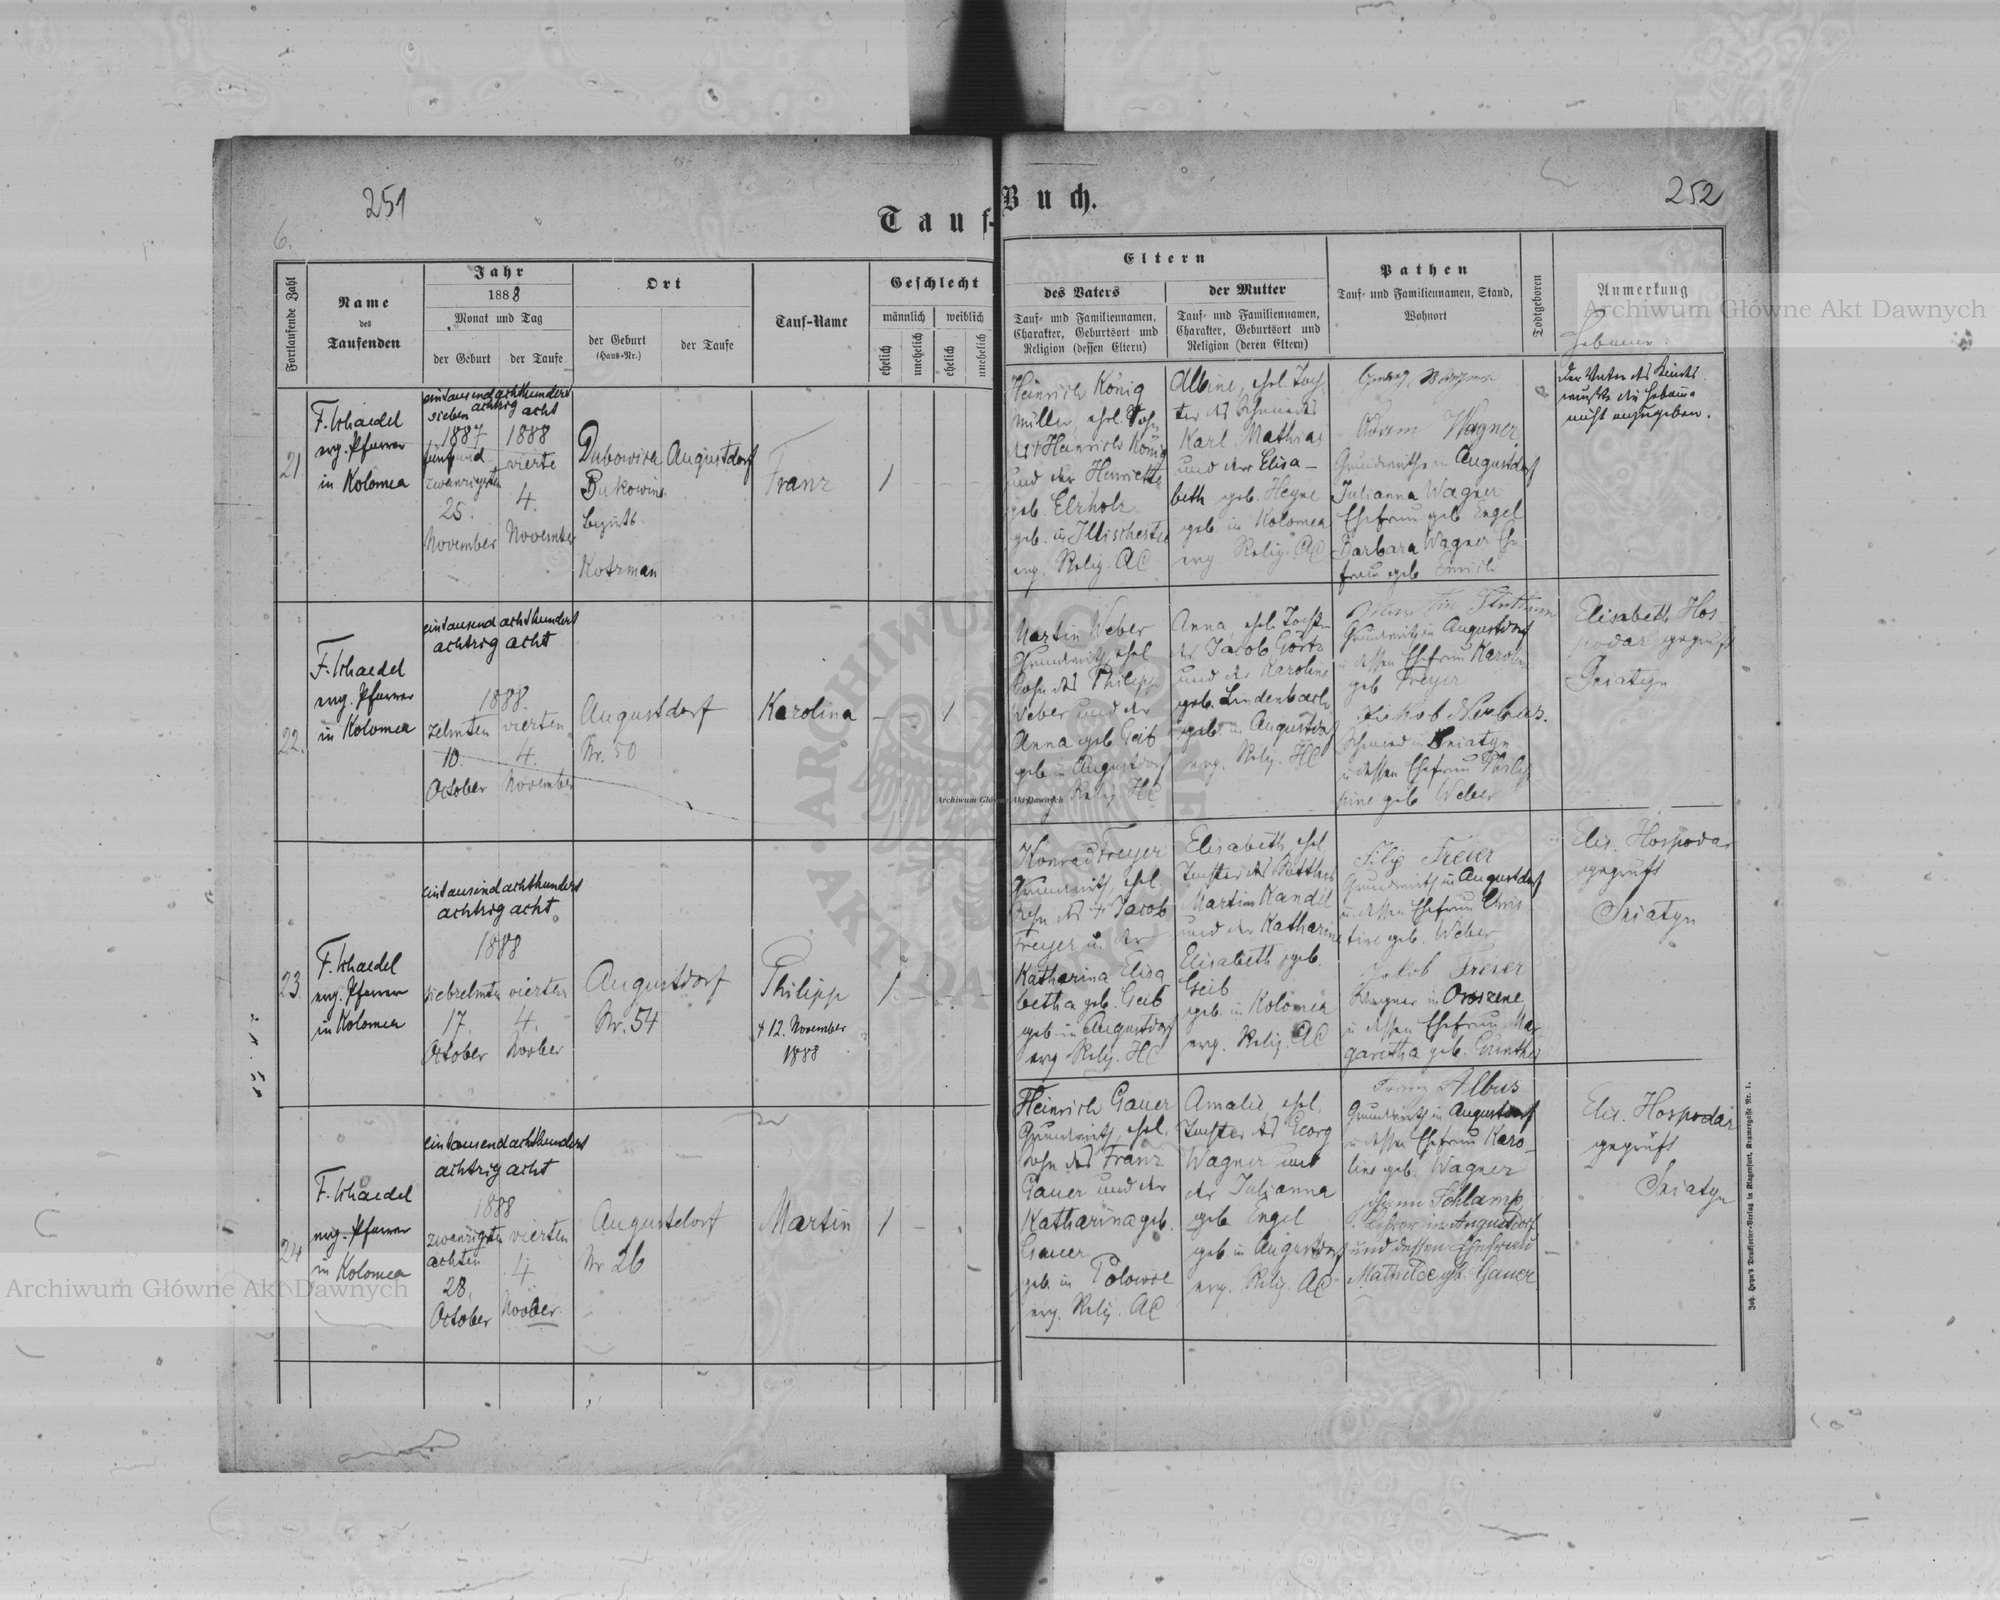 251
252
6.
Tauf-Buch.
Fortlaufende Zahl
Name
des
Taufenden
Jahr
1888
Monat und Tag
der Geburt
der Taufe
Ort
der Geburt
(Haus-Nr.)
der Taufe
Tauf-Name
Geschlecht
männlich
weiblich
ehelich
unehelich
ehelich
unehelich
Eltern
des Vaters
Tauf- und Familiennamen,
Charakter, Geburtsort und
Religion (dessen Eltern)
der Mutter
Tauf- und Familiennamen,
Charakter, Geburtsort und
Religion (deren Eltern)
Pathen
Tauf- und Familiennamen, Stand,
Wohnort
Todtgeboren
Anmerkung
Hebamme
21
evg. Pfarrer
in Kolomea
eintausendachthundert
sieben achtzig acht
1887 1888
fünfund vierte
zwanzigsten
25. 4.
November November
Augustdorf
Bukowina
Bezirk
Kotzman
Franz
1
Heinrich König
Müller, ehel. Sohn
des + Heinrich König
und der Henriette
geb. Elzholz
geb. in Illischestie
evg. Relig. AC
Albine, ehel. Toch-
ter des Schmiedes
Karl Mathias
und der Elisa-
beth geb. Heyne
geb. in Kolomea
evg Relig. AC
Adam Wagner
Grundwirth in Augustdorf
Julianna Wagner
Ehefrau geb Engel
Barbara Wagner Ehe-
frau geb
Der Vater des Kindes
wusste die Hebamme
nicht anzugeben.
22.
evg. Pfarrer
in Kolomea
eintausend achthundert
achtzig acht
1888.
zehnten vierten
10. 4.
October November
Augustdorf
Nr. 50
Karolina
1
Martin Weber
Grundwirth, ehel
Sohn des Philipp
Weber und der
Anna geb Geib
geb in Augustdorf
evg Relig HC
Anna ehel. Tochter
des Jacob Görtz
und der Karoline
geb. Lindenbach
geb. in Augustdorf
evg. Relig. HC
Grundwirth in Augustdorf
u dessen Ehefrau Karoline
geb Freyer
Schmied in Sniatyn
u dessen Ehefrau Philip-
pine geb Weber
Elisabeth Hos-
podar geprüft
Sniatyn
23.
evg. Pfarrer
in Kolomea
eintausend achthundert
achtzig acht
1888
siebzehnten vierten
17. 4.
October November
Augustdorf
Nr. 54
Philipp
+ 12. November
1888
1
Konrad Freyer
Grundwirth, ehel.
Sohn des + Jacob
Freyer u. der
Katharina Elisa
betha geb. Geib
geb in Augustdorf
evg Relig. HC
Elisabeth, ehel
Tochter des
Martin Kandel
und der Katharine
Elisabeth geb.
Geib
geb. in Kolomea
evg. Relig. AC
Filip Freier
Grundwirth in Augustdorf
u. dessen Ehefrau Chris-
tine geb. Weber
Jakob Freier
Wagner in Oroszeny
u dessen Ehefrau Mar-
garetha geb. Günther
Elis. Hospodar
geprüft
Sniatyn
24
evg. Pfarrer
in Kolomea
eintausendachthundert
achtzig acht
1888
zwanzigsten vierten
achten
28. 4.
October November
Augustdorf
Nr 26
Martin
1
Heinrich Gauer
Grundwirth, ehel.
Sohn des Franz
Gauer und der
Katharina geb.
Gauer
geb in
evg. Relig. AC
Amalie, ehel.
Tochter des Georg
Wagner und
der Julianna
geb Engel
geb in Augustdorf
evg. Relig. AC
Franz Albus
Grundwirth in Augustdorf
u dessen Ehefrau Karo-
line geb. Wagner
Johann Schlamp
Lehrer in Augustdorf
und dessen Ehefrau
Mathilde geb. Gauer
Elis. Hospodar
geprüft
Sniatyn
Archiwum Główne Akt Dawnych
Archiwum Główne Akt Dawnych
Archiwum Główne Akt Dawnych
ARCHIWUM GŁÓWNE AKT DAWNYCH